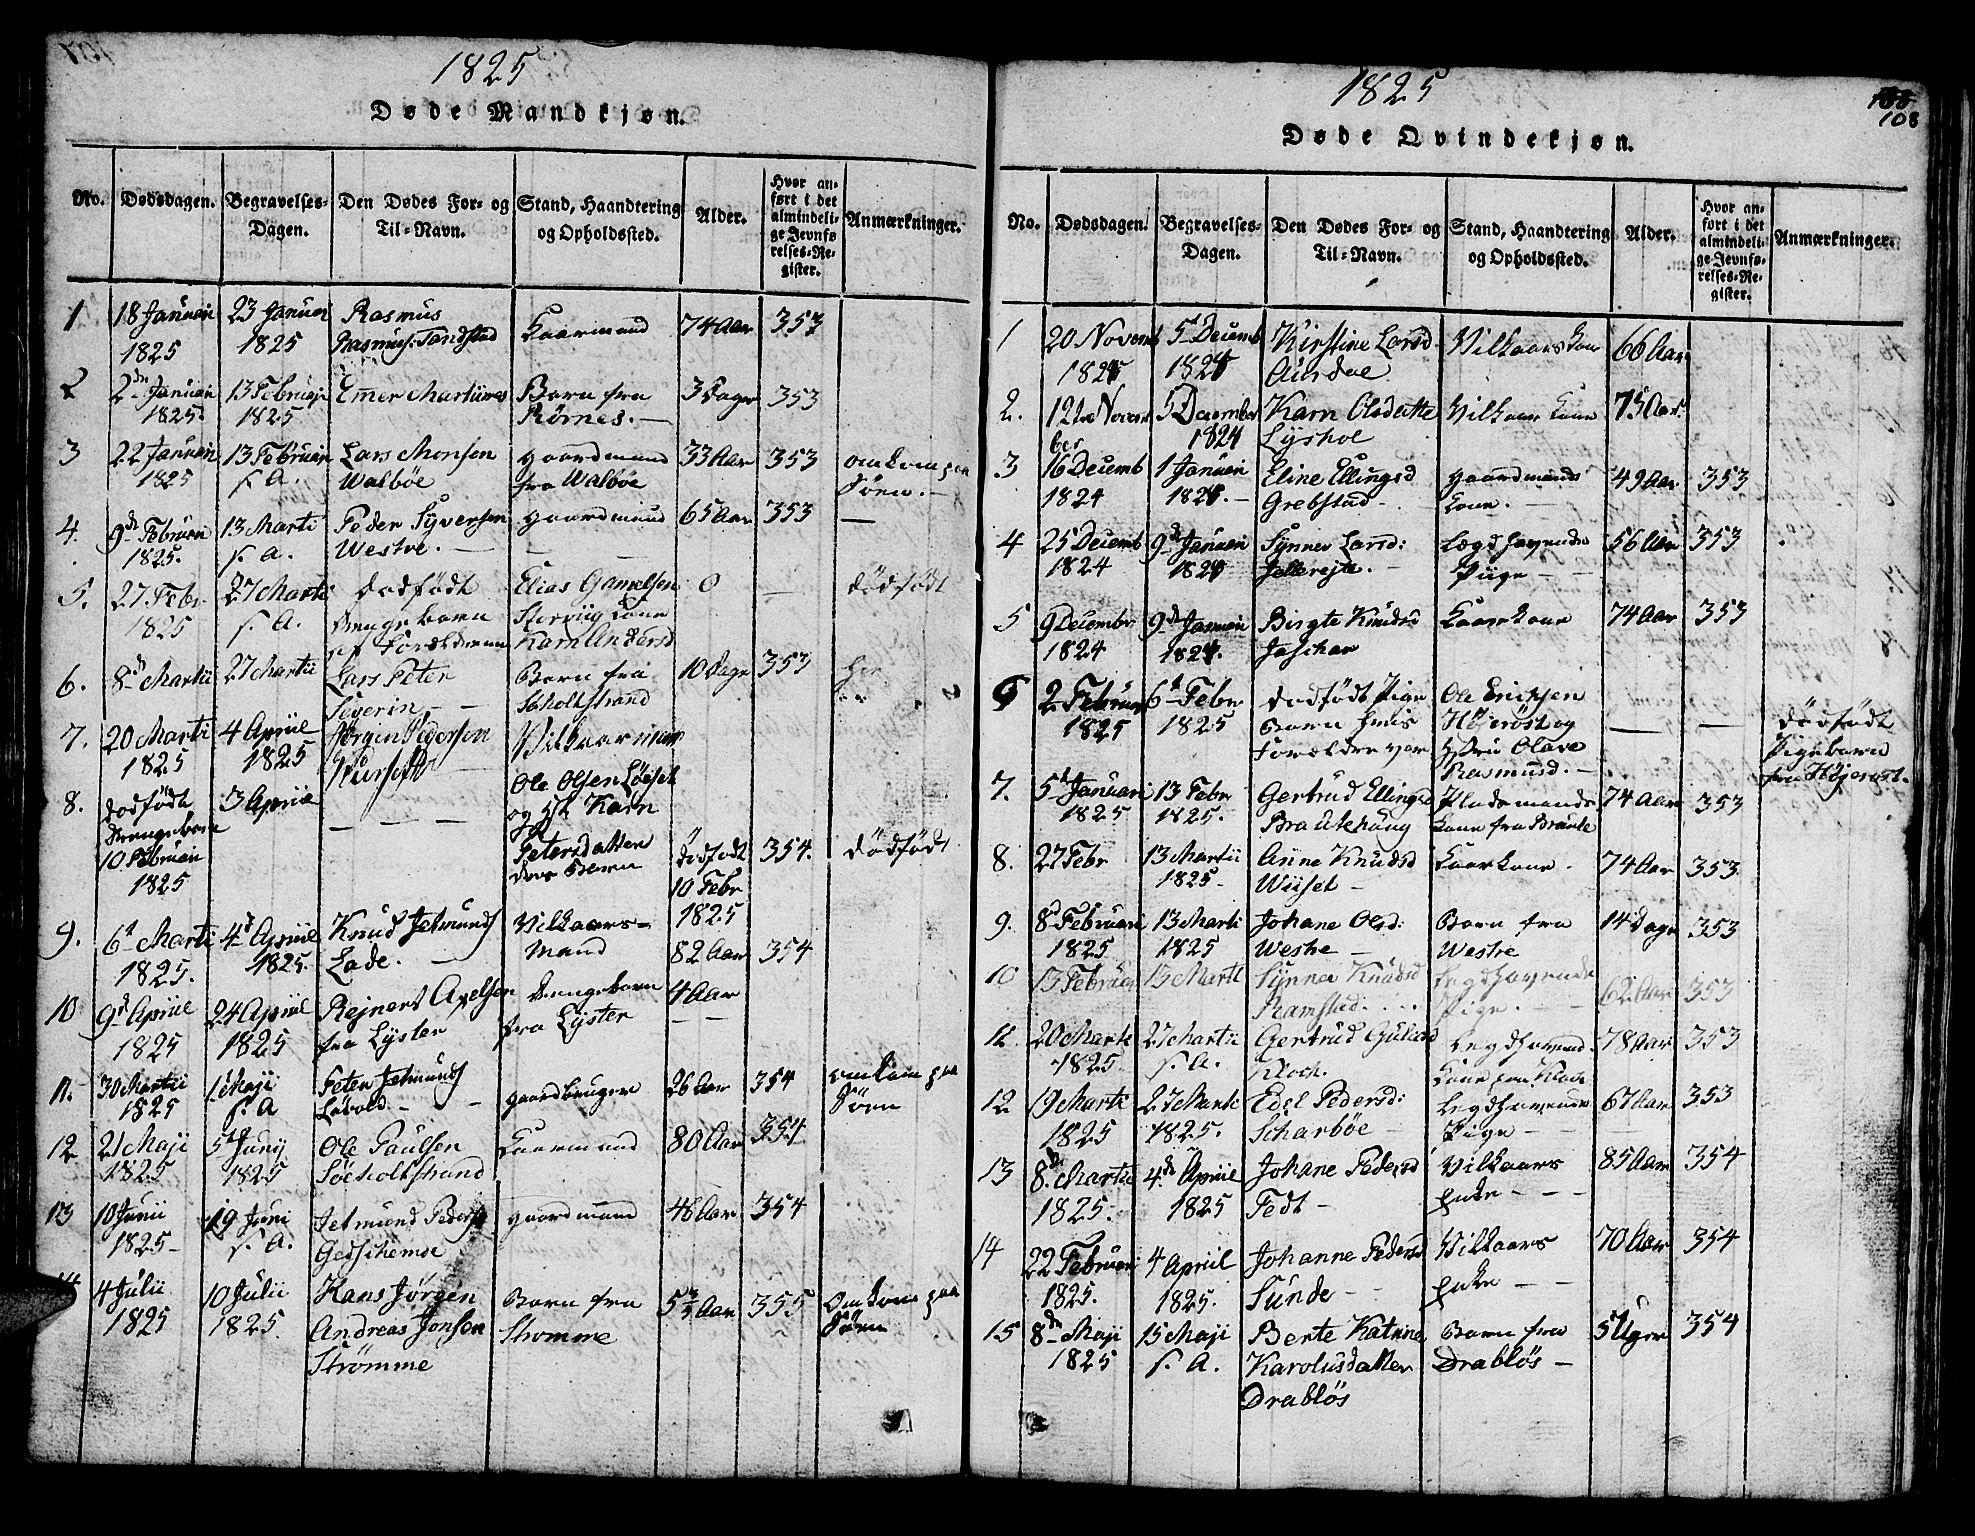 1825
Døde Mandkjøn.
No. Dødsdagen. Begravelses-Dagen. Den Dødes For- og Til-Navn. Stand, Haandtering og Opholdssted. Alder. Hvor anført i det almindelige Jevnførelses-Register. Anmærkninger.
1 18 Januari 1825 23 Januari 1825 Rasmus Rasmus: Tandstad Kaarmand 74 Aar 353
2 2den Januari 1825. 13 Februari 1825 Emer Martinus Barn fra Rørnes. 3 Dager 353
3 22 Januari 1825 13 Februari s. A. Lars Monsen Walbøe gaardmand fra Walbøe 33 Aar 353 omkom paa Søen.
4. 9de Februari 1825. 13 Marti s. A. Peder Syversen Westre. gaardmand 65 Aar 353
5. 27. Febr 1825 27 Marti s. A. dødfødt drengebarn af Forældrene Elias Gamelsen Karn Andersd 0 dødfødt
6. 8de Martii 27 Martii Lars Peter Severin Barn fra Scholtstrand 10 Dage 353
7. 20 Marti 1825 4 Apriil 1825 Jørgen Pedersen Vilkaarmand
8. dødfødt Drengebarn 10 Februari 1825 3 Apriil Ole Olsen Løeset og Hst Karn Petersdatter deres Barn dødfødt 10 Febr 1825 354. dødfødt
9. 6t Marti 1825. 4de Apriil 1825. Knud Jetmunds Lade. Vilkaars-Mand 82 Aar 354
10 9de Apriil 1825 24 Apriil 1825 Rejnert Axelsen fra Lyster Drengebarn fra Lyster 4 Aar
11. 30 Martii 1825 1 Maji s. A Peter Jetmunds Løvold gaardbruger 26 Aar 354 omkom paa Søen
12 21 Maji 1825 5t Junij 1825 Ole Paulsen Søeholtstrand Kaarmand 80 Aar 354
13 10 Junii 1825 19 Juni s. A. Jetmund Peders Gedschemoe gaardmand 46 Aar 354
14 4 Julii 1825 10 Julii 1825. Hans Jørgen Andreas Jonsen Strømme Barn fra Strømme 5 1/2 Aar 355 Omkom paa Søen
1825
108
Døde Qvindekjøn.
No. Dødsdagen. Begravelses-Dagen. Den Dødes For- og Til-Navn. Stand, Haandtering og Opholdssted. Alder. Hvor anført i det almindelige Jevnførelses-Register. Anmærkninger.
1 20 Novemb 1824 5t Decemb 1824 Kirstine Larsd Aursdae Vilkaarskone 66 Aar
2. 12te November 5 December 1824 Karn Olsdatte Lyshol Vilkaarkone 75 Aar
3 16 Decemb 1824 1 Januari Eline Ellingsd Grebstad gaardmands Kone. 49 Aar 353
4 25 Decemb 1824 9de Januari Synnev Larsd: Lægdhavende Piige 56 Aar 353
5 9 Decembr 1824 9de Januari Birgte Knudsd Kaarkone 74 Aar 353
6 2 Februar 1825 6t Febr 1825 dødfødt Pige Barn hvis Forældre var Ole Erichsen Højerøst og Olave Rasmusd. dødfødt Pigebarn fra Højerøst.
7. 5t Januari 1825 13 Febr 1825. Gertrud Ellingsd Brautehaug Pladsmands Kone fra Braute 74 Aar 353
8. 27 Febr 13 Martii 1825. Anne Knudsd Wiiset Kaarkone. 74 Aar 353
9. 8de Februari 1825 13 Marti 1825 Johane Olsd: Westre Barn fra Westre 14 Dage 353
10 13 Februari 13 Marti Synnev Knudsd Ramstad. Legdhavende Pige. 62 Aar 353
11. 20 Marti 1825. 27 Martii s. A. Gertrud Kloch. Legdhavend. Kone fra Kloch 78 Aar 353
12 19 Marti 1825 27 Marti 1825. Edel Pedersd: Scharbøe Legdhavende Pige 67 Aar 353
13 8de Martii 1825. 4de Apriil 1825 Johane Pedersd Fedt Vilkaars Enke 85 Aar 354
14 22 Februari 1825. 4 Apriil 1825. Johanne Pedersd Sunde Vilkaars Enke 70 Aar 354
15 8de Maji 1825 15 Maji s. A. Berte Katrine Karolusdatter Drabløs Barn fra Drabløs 5 Uger 354